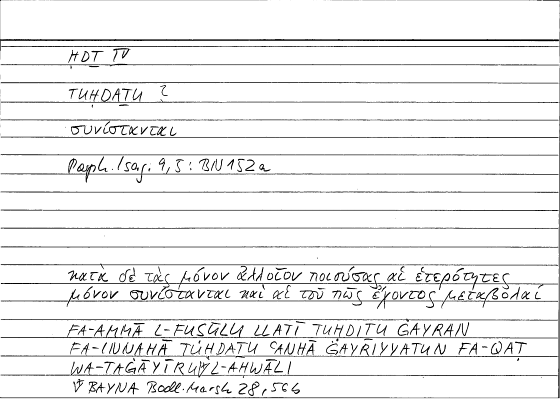 ḤDṮ IV
TUḤDAṮU ?
συνίστανται
Porph. Isag. 9,5: BN 152a
κατὰ δὲ τὰς μόνον ἀλλοῖον ποιούσας αἱ ἑτερότητες
μόνον συνίστανται καὶ αἱ τοῦ πῶς ἔχοντος μεταβολαί
FA-AMMĀ L-FUṢŪLU LLATĪ TUḤDIṮU ĠAYRAN
FA-INNAHĀ TUḤDAṮU ʿANHĀ ĠAYRIYYATUN FA-QAṬ
WA-TAĠĀYĪRU∜L-AḤWĀLI
∜ BAYNA Bodl. Marsh 28, 56b